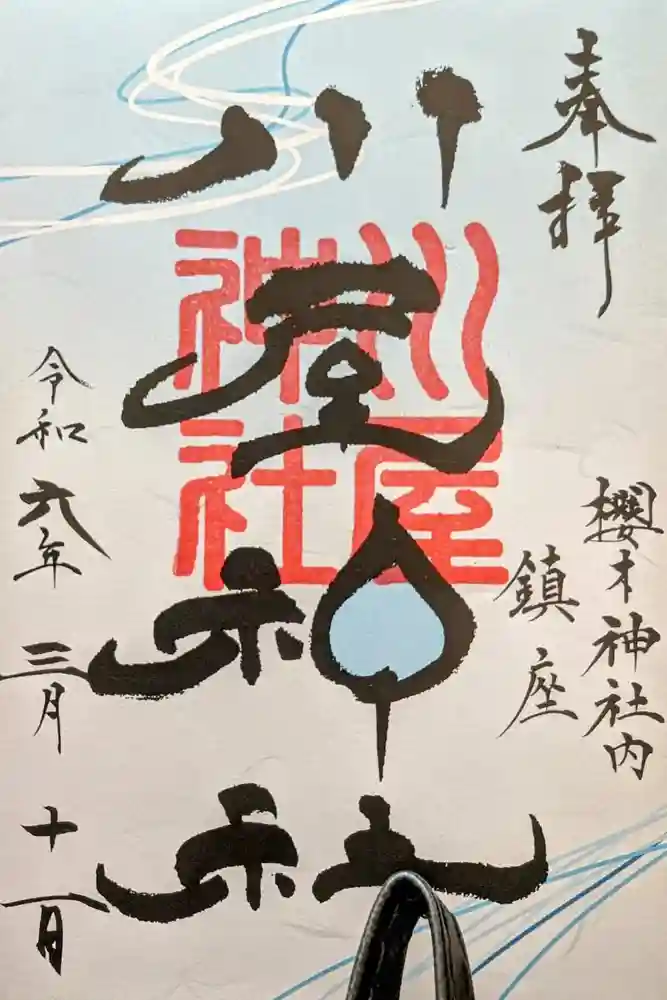 奉拝
櫻木神社内
鎮座
川屋神社
川屋
神社
令和六年三月十一日